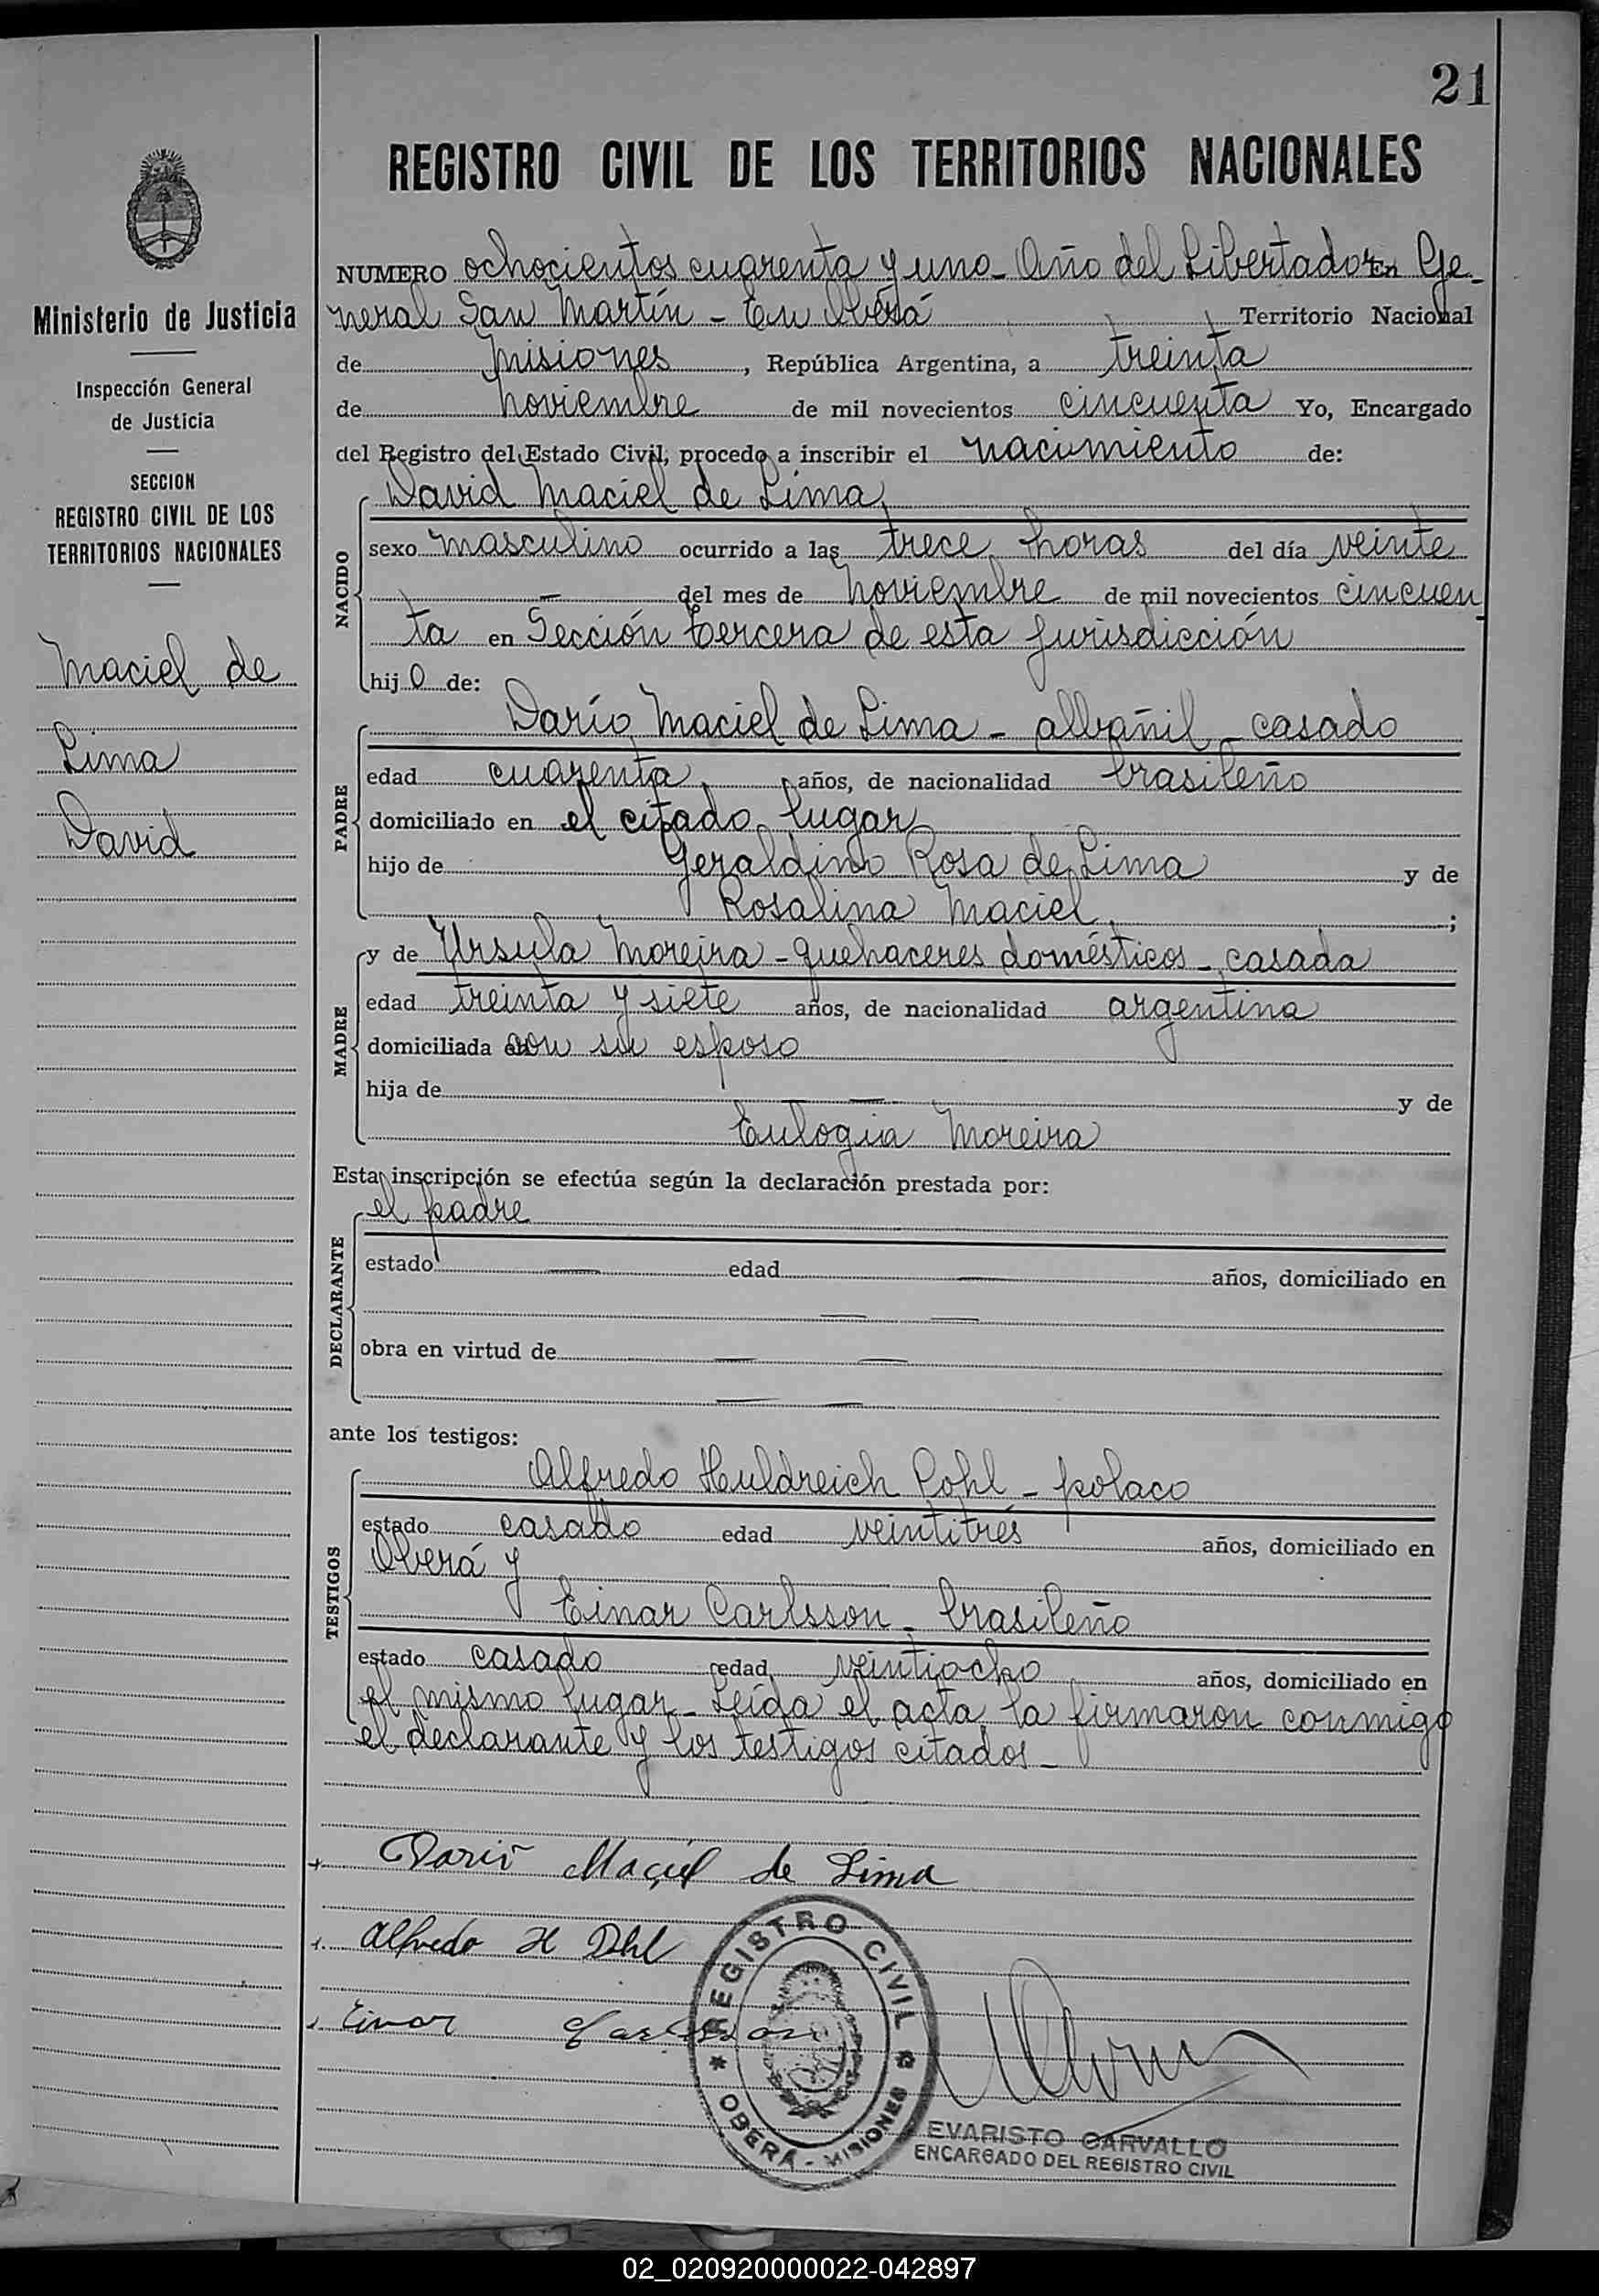 21
REGISTRO CIVIL DE LOS TERRITORIOS NACIONALES
NUMERO ochocientos cuarenta y uno - Año del Libertador En Ge-
neral San Martín - En Oberá Territorio Nacional
de Misiones, República Argentina, a treinta
de noviembre de mil novecientos cincuenta Yo, Encargado
del Registro del Estado Civil, procedo a inscribir el nacimiento de:
NACIDO
David Maciel de Lima
sexo masculino ocurrido a las trece horas del día veinte
— del mes de noviembre de mil novecientos cincuen
ta en Sección tercera de esta jurisdicción
hijo de:
PADRE
Darío Maciel de Lima - albañil - casado
edad cuarenta años, de nacionalidad brasileño
domiciliado en el citado lugar
hijo de Geraldino Rosa de Lima y de
Rosalina Maciel ;
MADRE
y de Ursula Moreira - quehaceres domésticos - casada
edad treinta y siete años, de nacionalidad argentina
domiciliada en con su esposo
hija de — y de
Eulogia Moreira
Esta inscripción se efectúa según la declaración prestada por:
DECLARANTE
el padre
estado — edad — años, domiciliado en
— —
obra en virtud de — —
— —
ante los testigos:
TESTIGOS
Alfredo Huldreich Pohl - polaco
estado casado edad veintitrés años, domiciliado en
Oberá y
Einar Carlsson - brasileño
estado casado edad veintiocho años, domiciliado en
el mismo lugar - Leída el acta, la firmaron conmigo
el declarante y los testigos citados -
Dario Maciel de Lima
Alfredo H Pohl
Einar Carlsson
REGISTRO CIVIL
OBERÁ - MISIONES
EVARISTO CARVALLO
ENCARGADO DEL REGISTRO CIVIL
Ministerio de Justicia
Inspección General
de Justicia
SECCION
REGISTRO CIVIL DE LOS
TERRITORIOS NACIONALES
Maciel de
Lima
David
02_020920000022-042897